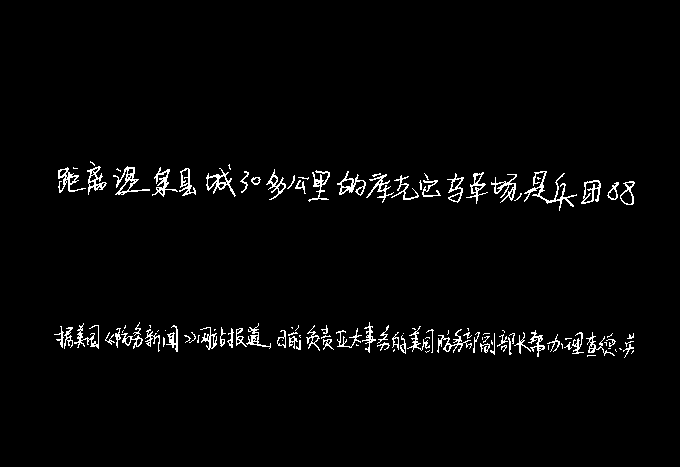 距离温泉县城30多公里的库克它乌草场,是兵团88
据美国《防务新闻》网站报道,日前负责亚太事务的美国防务部副部长帮办理查德·劳